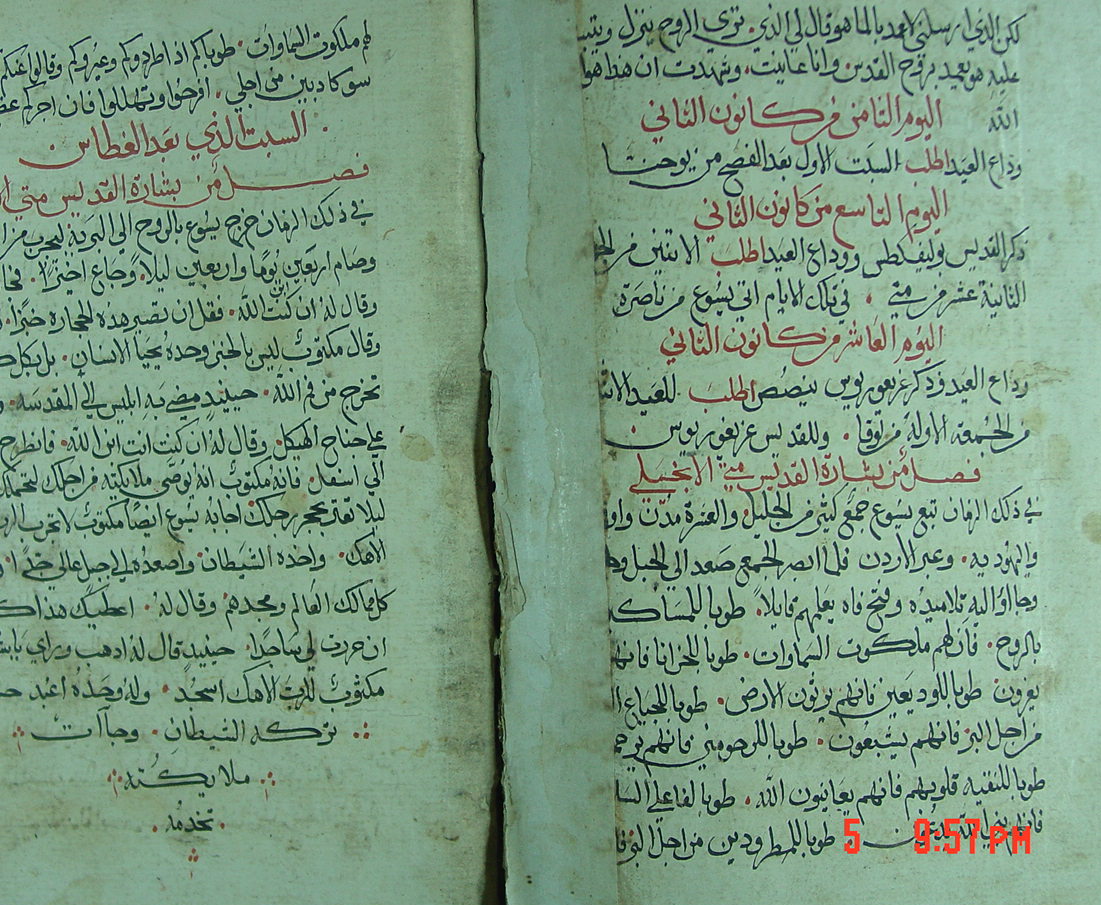 لكن الذي ارسلني لاعمد بالما هو قال لي الذي ترى الروح ينزل
عليه هو يعمد بروح القدس وانا عاينت وشهدت ان هذا هو
الله
اليوم الثامن من كانون الثاني
وداع العيد اطلب السبت الاول بعد الفصح من يوحنا
اليوم التاسع من كانون الثاني
ذكر القديس وليفكطس ووداع العيد اطلب الاتنين من
الثانية عشر من متي . في تلك الايام اتي يسوع من ناصرة
اليوم العاشر من كانون الثاني
وداع العيد وذكر غريغوريوس نيصص اطلب للعيد
من الجمعة الاولة من لوقا . وللقديس غريغوريوس
فصل من بشارة القديس متي الانجيلي
في ذلك الزمان تبع يسوع جمع كثير من الجليل والعشرة مدن
واليهوديه . وعبر الاردن فلما ابصر الجمع صعد الي الجبل
وجاؤا اليه تلاميذه وفتح فاه يعلمهم قايلا . طوبا للمساكين
بالروح . فان لهم ملكوت السماوات . طوبا للحزانا فانهم
يعزون طوبا للوديعين فانهم يرثون الارض . طوبا للجياع
من اجل البر فانهم يشبعون . طوبا للرحومين فانهم
طوبا للنقيه قلوبهم فانهم يعاينون الله . طوبا لفاعلي
فانهم بني الله يدعون طوبا للمطرودين من اجل البر
5 9:57 PM
لهم ملكوت السماوات . طوباكم اذا طردوكم وعيروكم وقالوا عنكم
سو كاذبين من اجلي . افرحوا وتهللوا فان اجركم
السبت الذي بعد الغطاس
فصل من بشارة القديس متي
في ذلك الزمان خرج يسوع بالروح الي البرية ليجرب من
وصام اربعين يوما واربعين ليلا . وجاع اخيرا .
وقال له ان كنت ابن الله . فقل ان تصير هذه الحجارة خبزا .
وقال مكتوب ليس بالخبز وحده يحيا الانسان . بل بكل
تخرج من فم الله . حينيذ مضي به ابليس الي المقدسه .
علي جناح الهيكل وقال له ان كنت انت ابن الله . فانطرح
الي اسفل . فانه مكتوب انه يوصي ملايكته من اجلك
ليلا تعثر بحجر رجلك . اجابه يسوع ايضا مكتوب لا تجرب الرب
الاهك . واخذه الشيطان واصعده الي جبل عالي جدا
كل ممالك العالم ومجدهم . وقال له . اعطيك هذا
ان خررت لي ساجدا . حينيذ قال له اذهب وراي
مكتوب للرب الاهك اسجد . وله وحده اعبد
تركه الشيطان . وجاات
ملايكته
تخدمه